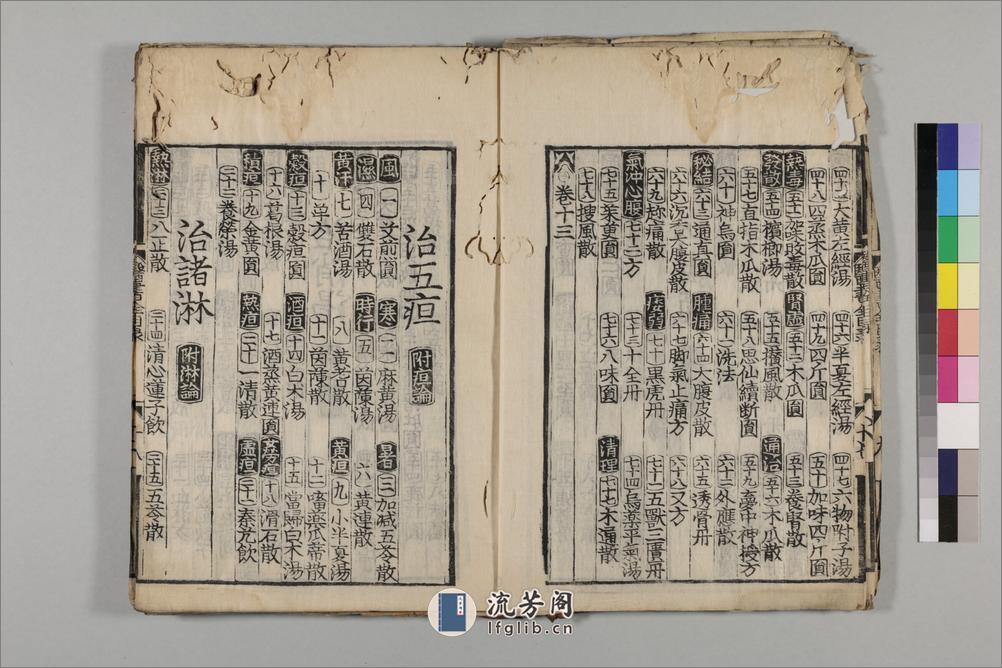 四十五大黃左經湯 四十六半夏左經湯 四十七六物附子湯
四十八四蒸木瓜圓 四十九四斤圓 五十加味四斤圓
熱毒 五十一 敗毒散 腎虛 五十二木瓜圓 五十三養腎散
發散 五十四檳榔湯 五十五搜風散 通治 五十六木瓜散
五十七直指木瓜散 五十八思仙續斷圓 五十九 中神授方
六十神烏圓 六十一洗法 六十二外應散
秘結 六十三通真圓 腫痛 六十四大腹皮散 六十五透骨丹
六十六沉香大腹皮散 六十七脚氣止痛方 六十八又方
六十九 痛散 七十一黑虎丹 七十二五獸三匱丹
氣冲心腹 七十二方 七十三十全丹 七十四烏藥平氣湯
七十五茱萸圓 七十六八味圓 清理 七十七木通散
七十八搜風散
卷十三
治五疸 附疸論
風 一艾煎圓 寒 二麻黃湯 暑 三加減五苓散
濕 四雙石散 時行 五茵陳湯 六黃連散
黃汗 七苦酒湯 八黃耆散 黃疸 九小半夏湯
十單方 十一茵陳散 十二㗜藥瓜蒂散
穀疸 十三穀疸圓 酒疸 十四白术湯 十五當歸白术湯
十六葛根湯 十七酒蒸黃連圓 女勞疸 十八滑石散
積疸 十九金黃圓 熱疸 二十一清散 虛疸 二十一秦艽飲
二十二養榮湯
治諸淋 附淋論
熱淋 二十三八正散 二十四清心蓮子飲 二十五五苓散
流芳阁
lfglib.cn